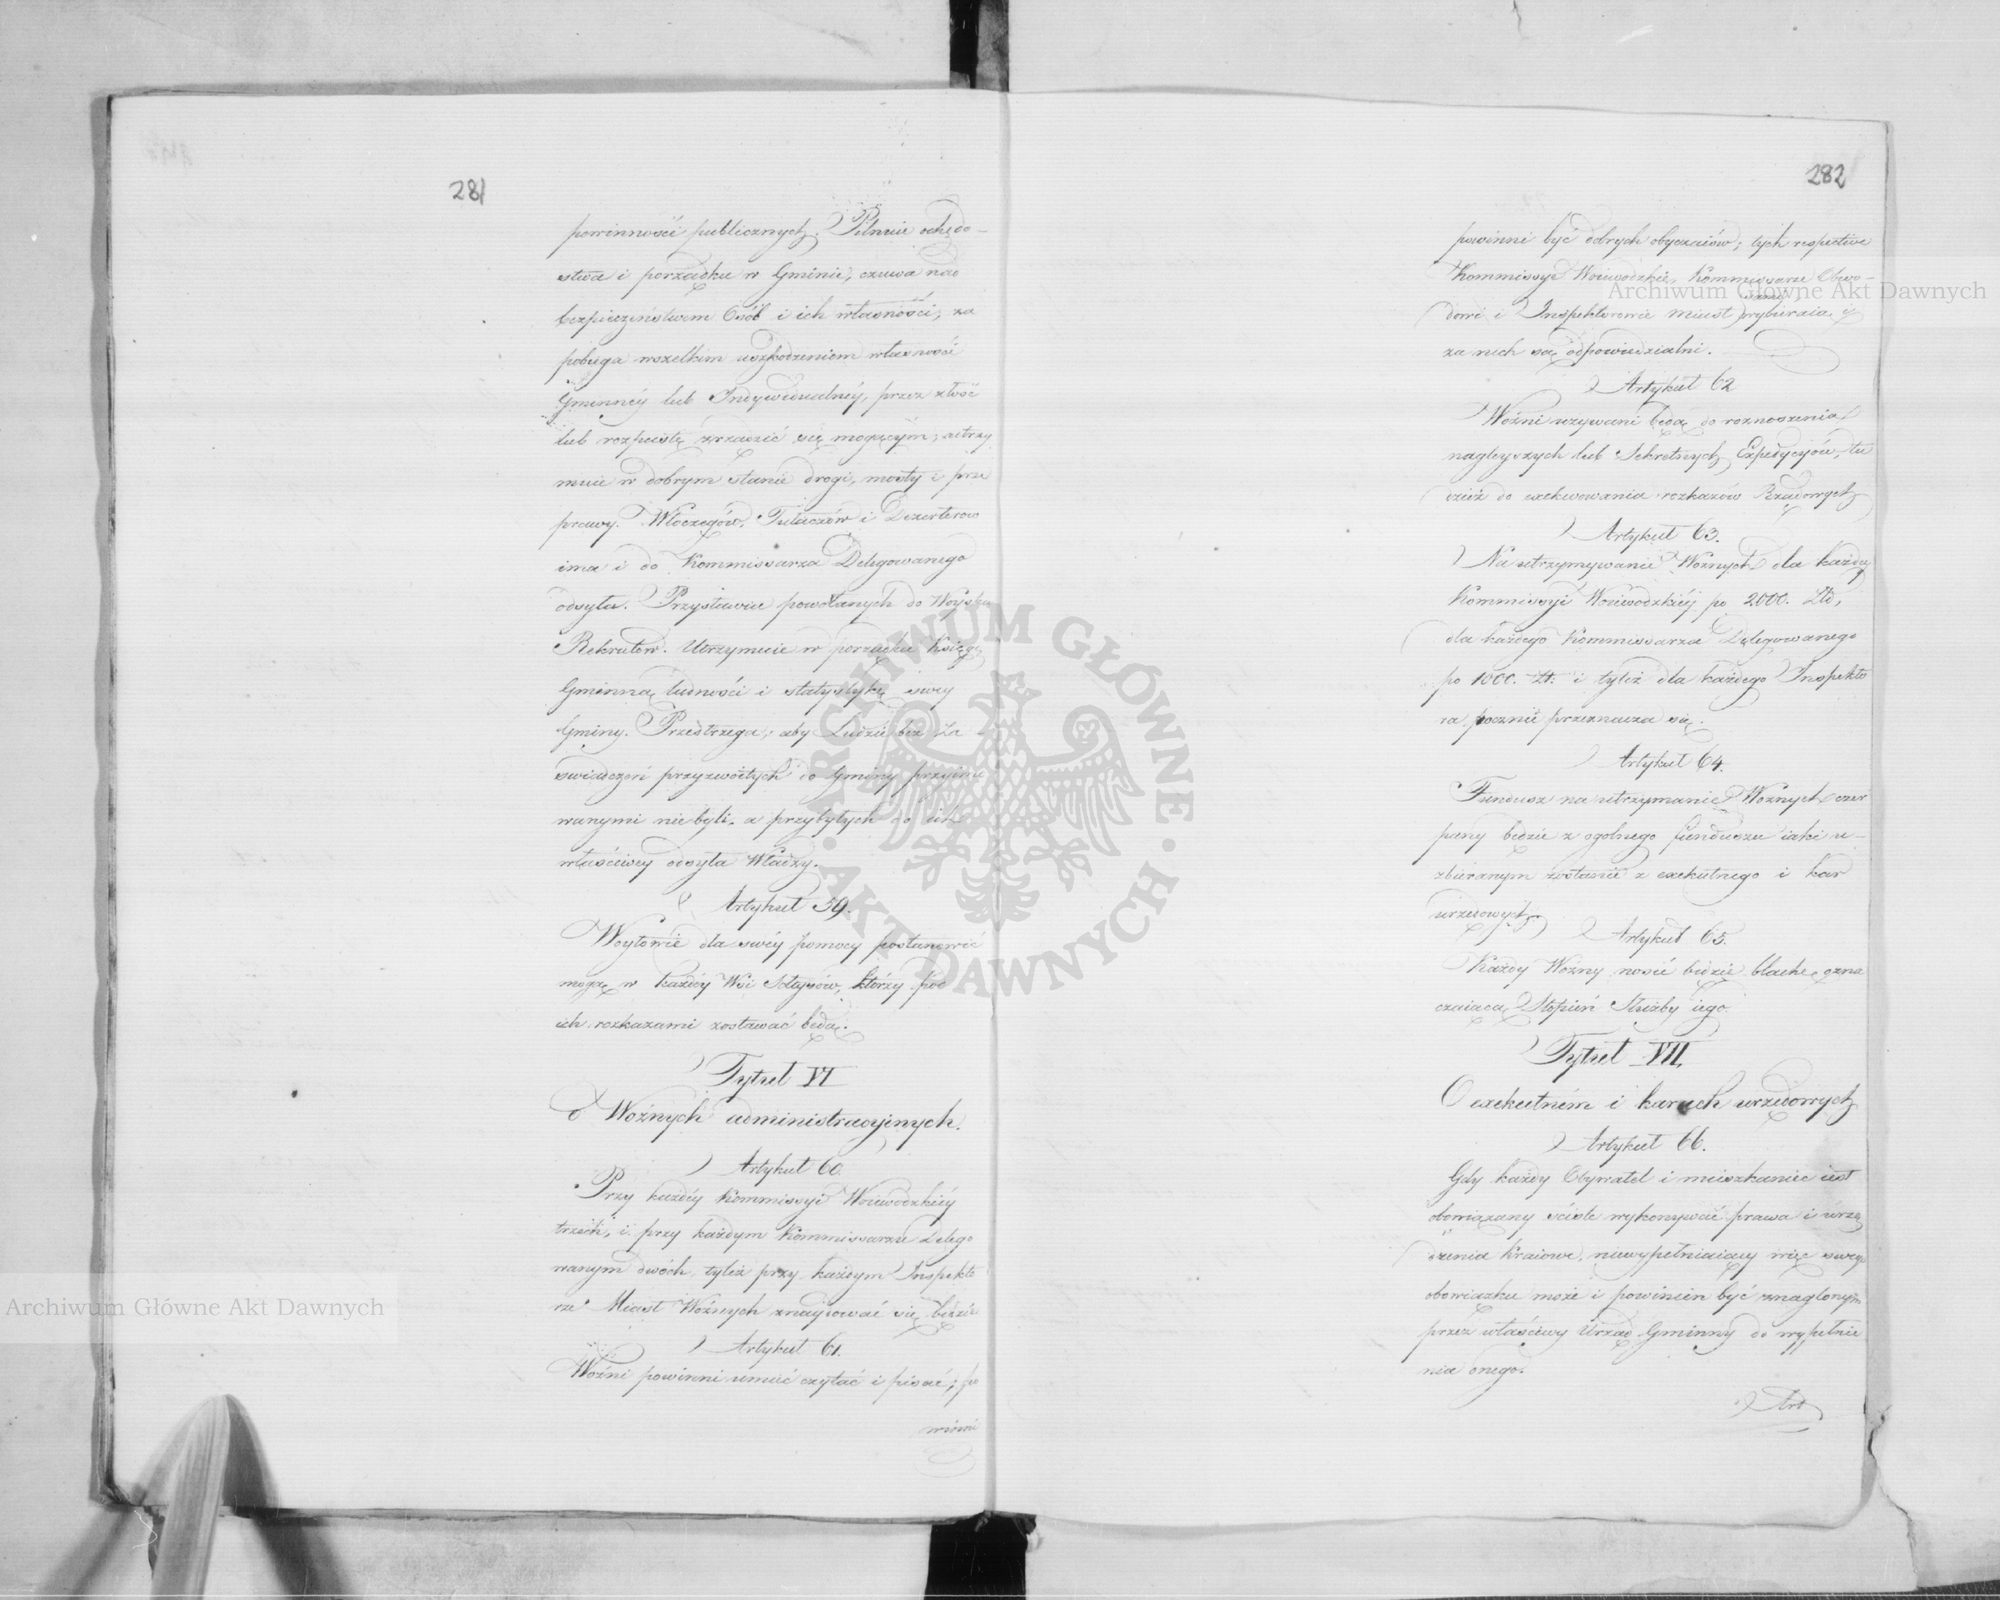 281
powinność publicznych. Pilnuie ochędo-
stwa i porządku w Gminie, czuwa nad
bezpieczeństwem Osób i ich własności, za
pobiega wszelkim uszkodzeniom własność
Gminnéy lub Indywidualnéy, przez złość
lub rozpustę zrządzić się mogącym; utrzy
muie w dobrym stanie drogi, mosty i prze
prawy. Włóczęgów, Tułaczów i Dezerterow
ima i do Kommissarza Delegowanego
odsyła. Przystawia powołanych do Woyska
Rekrutów. Utrzymuie w porządku Księgę
Gminną ludności i statystykę swey
Gminy. Przestrzega, aby Ludzie bez Za-
swiadczeń przyzwoitych do Gminy przyimo
wanymi niebyli, a przybyłych do ich
właściwey odsyła Władzy.
Artykuł 59.
Woytowie dla swéy pomocy postanowić
mogą w każdéy Wsi Sołtysów, którzy pod
ich rozkazami zostawać będą.
Tytuł VI
O Woźnych administracyjnych.
Artykuł 60.
Przy każdéy Kommissyi Woiewodzkiéy
trzech, i przy każdym Kommissarzu Delego
wanym dwóch, tyleż przy każdym Inspekto
rze Miast Woźnych znaydować się będzie
Artykuł 61.
Woźni powinni umieć czytać i pisać; po
winni
282
powinni być dobrych obyczaiów; tych respective
Kommissye Woiewodzkie, Kommissarze Obwo-
dowi i Inspektorowie miast wybieraią, y
za nich są odpowiedzialni.
Artykuł 62
Woźni używani będą do roznoszenia
nagleyszych lub Sekretnych Expedycyów, tu
dzież do exekwowania rozkazów Rządowych
Artykuł 63.
Na utrzymywanie Woźnych dla każdéy
Kommissyi Woiewodzkiéy po 2000. Złł,
dla każdego Kommissarza Delegowanego
po 1000. Zł. i tyleż dla każdego Inspekto
ra, rocznie przeznacza się.
Artykuł 64.
Fundusz na utrzymanie Woźnych czer
pany będzie z ogólnego funduszu iaki u-
zbieranym zostanie z exekutnego i kar
urzędowych.
Artykuł 65.
Każdy Woźny nosić będzie blachę ozna
czaiącą Stopień Służby iego.
Tytuł VII.
O exekutném i karach urzędowych
Artykuł 66.
Gdy każdy Obywatel i mieszkaniec iest
obowiązany ściśle wykonywać prawa i urzą
dzenia Kraiowe, niewypełniaiący więc swego
obowiązku może i powinien być znaglonym
przez właściwy Urząd Gminny do wypełnie
nia onego.
Art
Archiwum Główne Akt Dawnych
Archiwum Główne Akt Dawnych
ARCHIWUM GŁÓWNE · AKT DAWNYCH ·